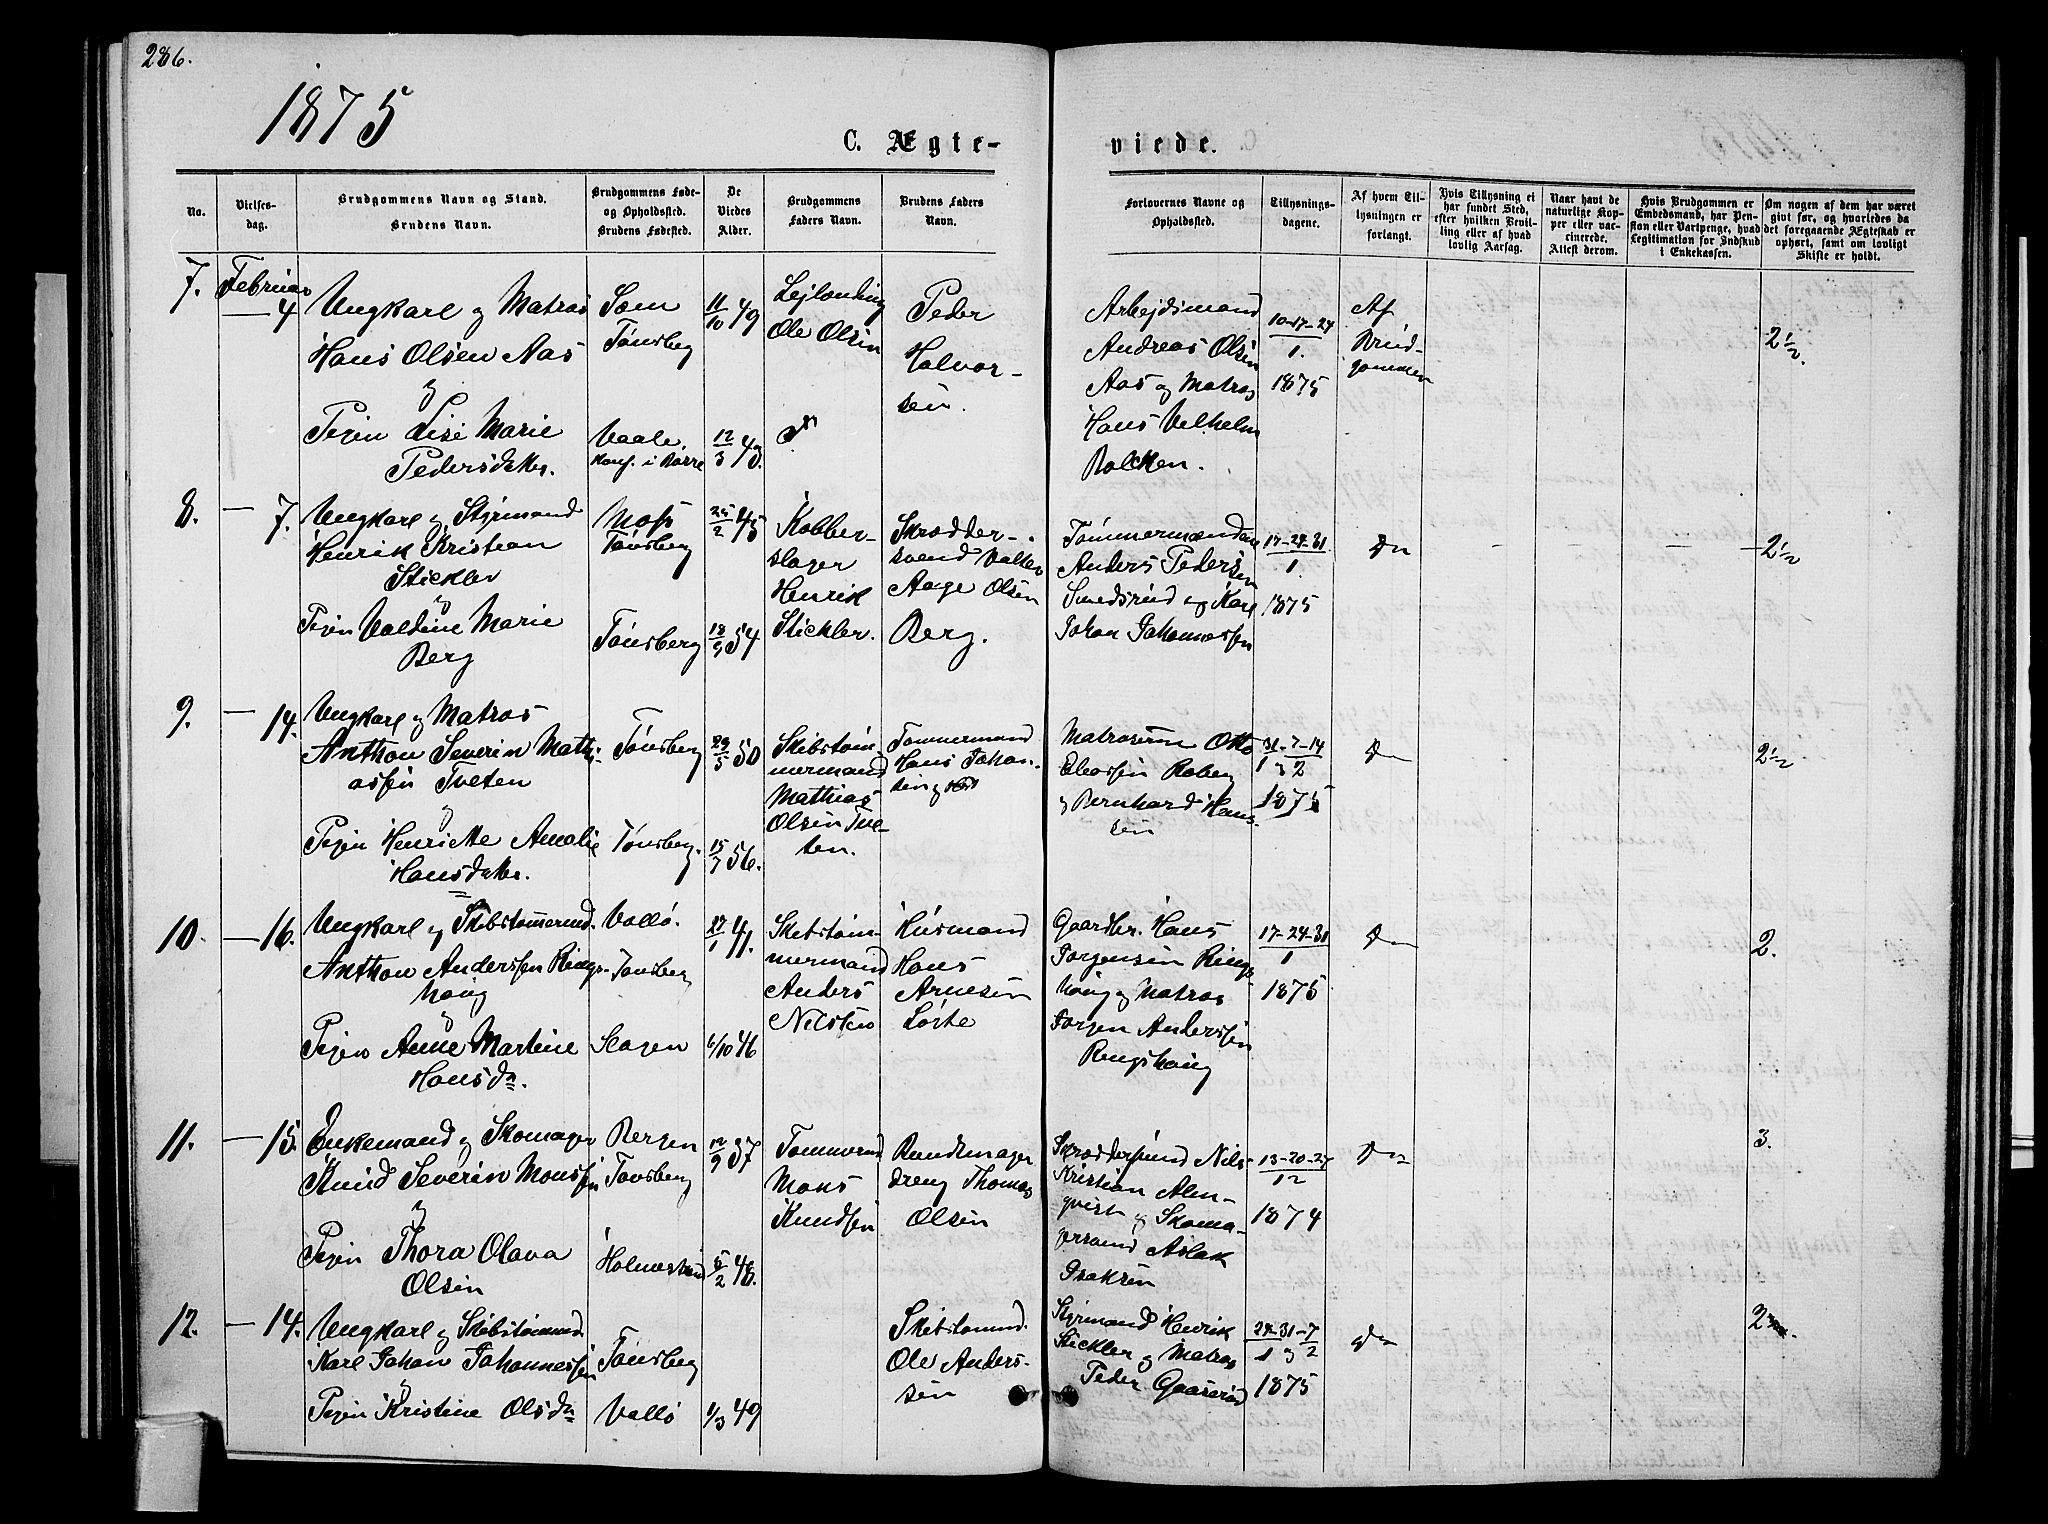 286.
1875
C. Ægte-
viede.
No.
Vielses-
dag.
Brudgommens Navn og Stand.
Brudens Navn.
Brudgommens Føde-
og Opholdssted.
Brudens Fødested.
De
Viedes
Alder.
Brudgommens
Faders Navn.
Brudens Faders
Navn.
Forlovernes Navne og
Opholdssted.
Tillysnings-
dagene.
Af hvem Til-
lysningen er
forlangt.
Hvis Tillysning ei
har fundet Sted,
efter hvilken Bevil-
ling eller af hvad
lovlig Aarsag.
Naar havt de
naturlige Kop-
per eller vac-
cinerede.
Attest derom.
Hvis Brudgommen er
Embedsmand, har Pen-
sion eller Vartpenge, hvad
Legitimation for Indskud
i Enkekassen.
Om nogen af dem har været
givt før, og hvorledes da
det foregaaende Ægteskab er
ophørt, samt om lovligt
Skifte er holdt.
7.
Februar
— 4
Ungkarl og Matros
Hans Olsen Aas
og
Pigen Lise Marie
Pedersdatter.
Sem
Tønsberg
Vaale.
Konf. i Borre
11/10 49
12/3 43.
Lejlænding
Ole Olsen
Peder
Halvor-
sen.
Arbejdsmand
Andreas Olsen
Aas og Matros
Hans Vilhelm
Bolcken.
10-17-24
1.
1875
Af
Brud-
gommen
2 1/2.
8.
— 7.
Ungkarl og Styrmand
Henrik Kristian
Stickler
og
Pigen Valdine Marie
Berg
Moss
Tønsberg
Tønsberg
25/2 45
18/9 54
Kobber-
slager
Henrik
Stickler.
Skrædder-
svend Valter
Aage Olsen
Berg.
Tømmermændene
Anders Pedersen
Smedsrud og Karl
Johan Johannessen
17-24-31
1.
1875
Do
2 1/2
9.
— 14.
Ungkarl og Matros
Anthon Severin Mathi-
assen Tveten
og
Pigen Henriette Amalie
Hansdatter.
Tønsberg
Tønsberg.
23/5 50
15/7 56.
Skibstøm-
mermand
Mathias
Olsen Tve-
ten.
Tømmermand
Hans Johan-
sen
Matroserne Otto
Eliassen Roberg
og Bernhard Han-
sen
31-7-14
1 og 2
1875
Do
2 1/2
10.
— 16.
Ungkarl og Skibstømmermd.
Anthon Anderssen Rings-
houg
og
Pigen Anne Martine
Hansdr.
Vallø.
Tønsberg
Slagen
27/1 41.
6/10 46
Skibstøm-
mermand
Anders
Nilssen
Husmand
Hans
Arnesen
Løste
Gaardbr. Hans
Jørgensen Rings-
houg og Matros
Jørgen Anderssen
Ringshoug
17-24-31
1
1875
Do
2.
11.
— 15.
Enkemand og Skomager
Knud Severin Monssen
og
Pigen Thora Olava
Olsen
Bergen
Tønsberg
Holmestrand
12/9 37
5/2 48.
Tømmermd
Mons
Knudsen
Bundtmager
dreng Thomas
Olsen
Skræddersvend Nils
Kristian Alm-
qvist og Skoma-
gersvend Aslak
Isaksen
13-20-27
12
1874
Do
3.
12.
— 14.
Ungkarl og Skibstømmermd.
Karl Johan Johannessen
og
Pigen Kristine Olsdr
Tønsberg
Vallø
1/3 49
Skibstømmd.
Ole Anders-
sen
Styrmand Henrik
Stickler og Matros
Peder Gaaserød
24-31-7
1 og 2
1875
Do
2